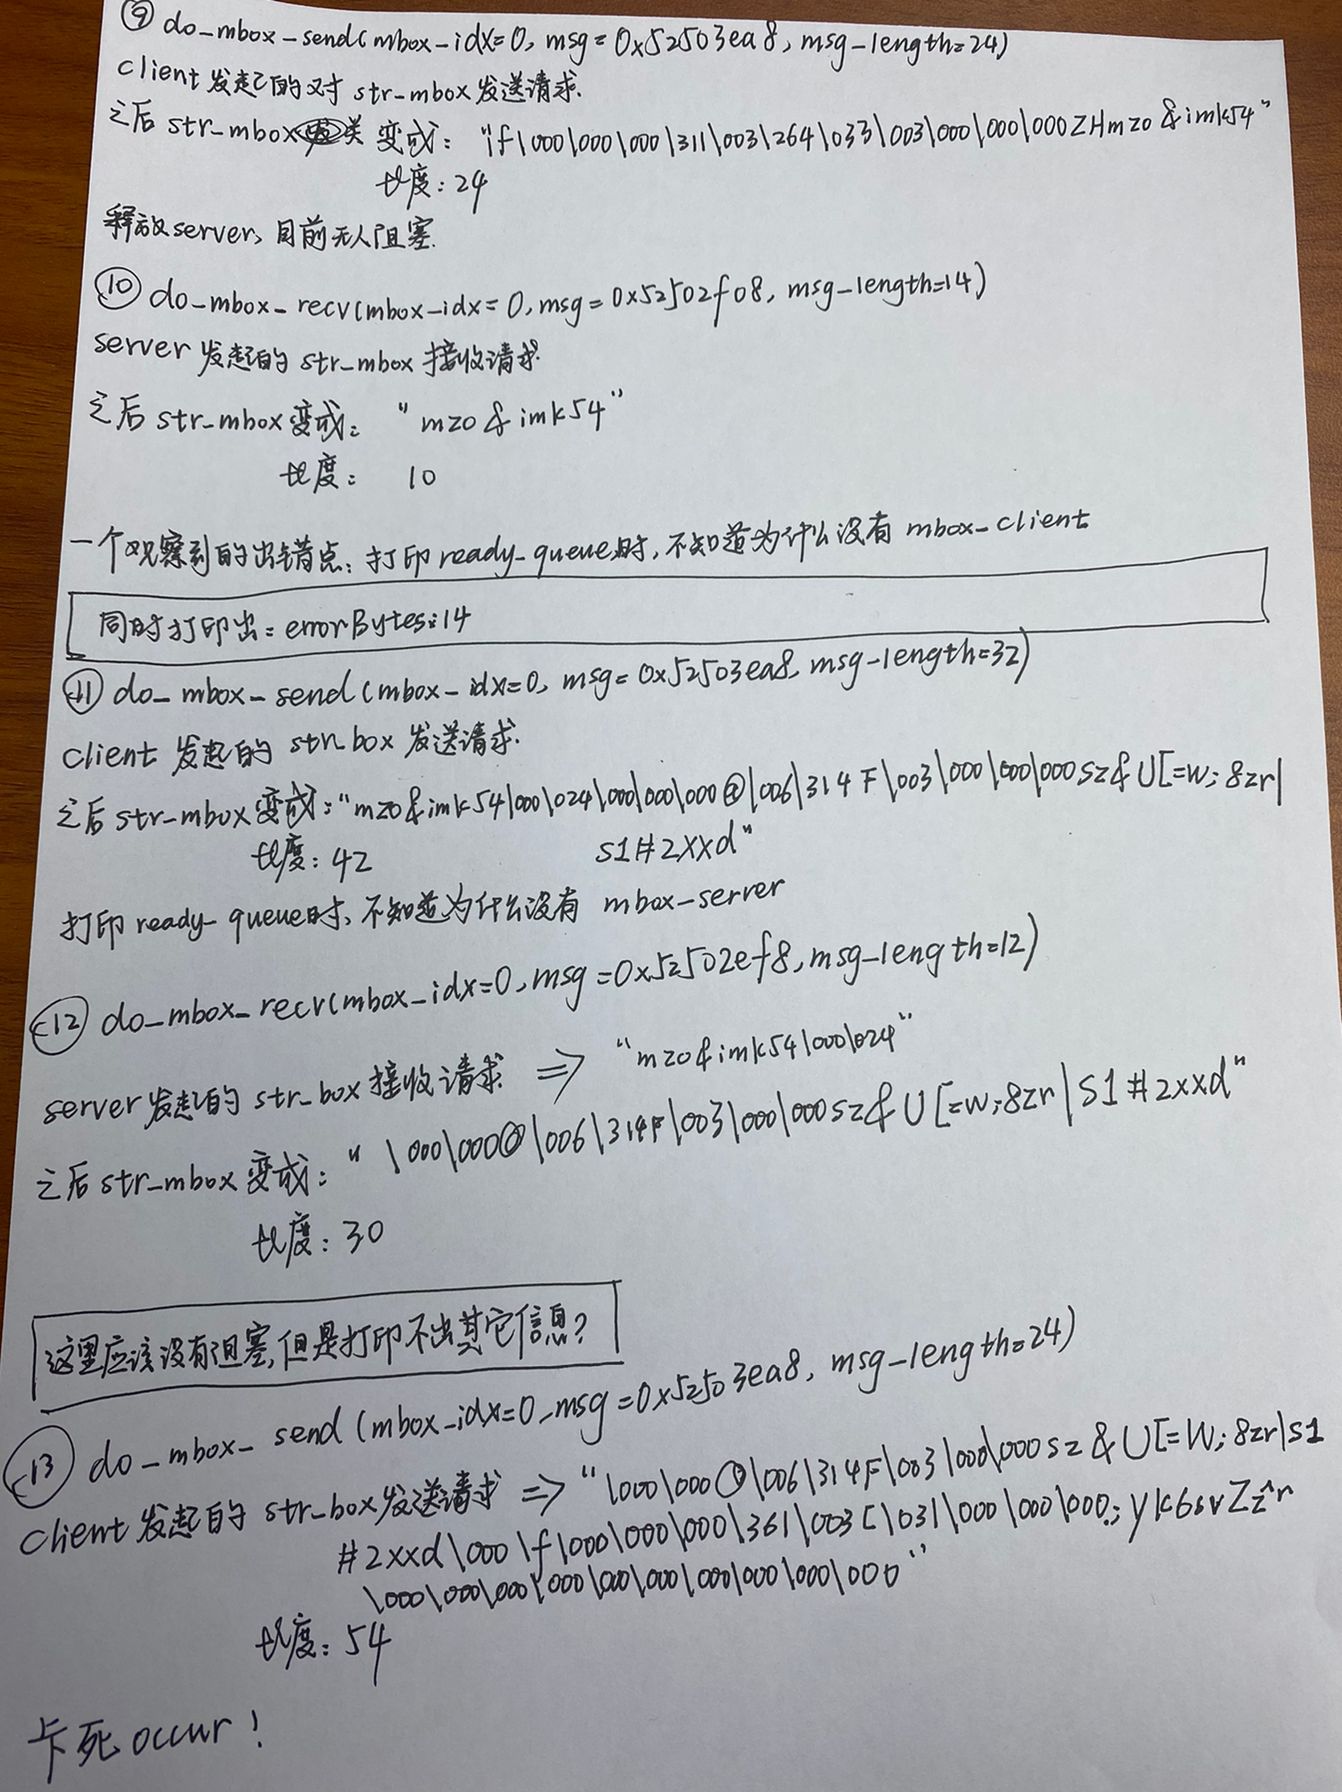 ⑨ do_mbox_send(mbox-idx=0, msg=0x52503ea8, msg-length=24)
client 发起的对 str_mbox 发送请求.
之后 str_mbox 变成: "\f\000\000\000\311\003\264\033\003\000\000\000ZHmzo&imk54"
长度: 24
释放server, 目前无人阻塞.
⑩ do_mbox_recv(mbox-idx=0, msg=0x52502f08, msg-length=14)
server 发起的 str_mbox 接收请求.
之后 str_mbox 变成: "mzo&imk54"
长度: 10
一个观察到的出错点: 打印 ready_queue时, 不知道为什么没有 mbox_client
同时打印出: errorBytes:14
⑪ do_mbox_send(mbox_idx=0, msg=0x52503ea8, msg-length=32)
client 发起的 str_box 发送请求.
之后 str_mbox 变成: "mzo&imk54\000\024\000\000\000@\006\314F\003\000\000\000sz&U[=w;8zr|
长度: 42 s1#2xxd"
打印 ready_queue时, 不知道为什么没有 mbox-server
⑫ do_mbox_recv(mbox_idx=0, msg=0x52502ef8, msg-length=12)
server 发起的 str_box 接收请求 ⇒ "mzo&imk54\000\024"
之后 str_mbox 变成: "\000\000@\006\314F\003\000\000sz&U[=w;8zr|s1#2xxd"
长度: 30
这里应该没有阻塞, 但是打印不出其它信息?
⑬ do_mbox_send(mbox_idx=0, msg=0x52503ea8, msg-length=24)
client 发起的 str_box 发送请求 ⇒ "\000\000@\006\314F\003\000\000sz&U[=W;8zr|s1
#2xxd\000\f\000\000\000\361\003[\031\000\000\000;yk6svZz^n
\000\000\000\000\000\000\000\000\000\000"
长度: 54
卡死 occur!